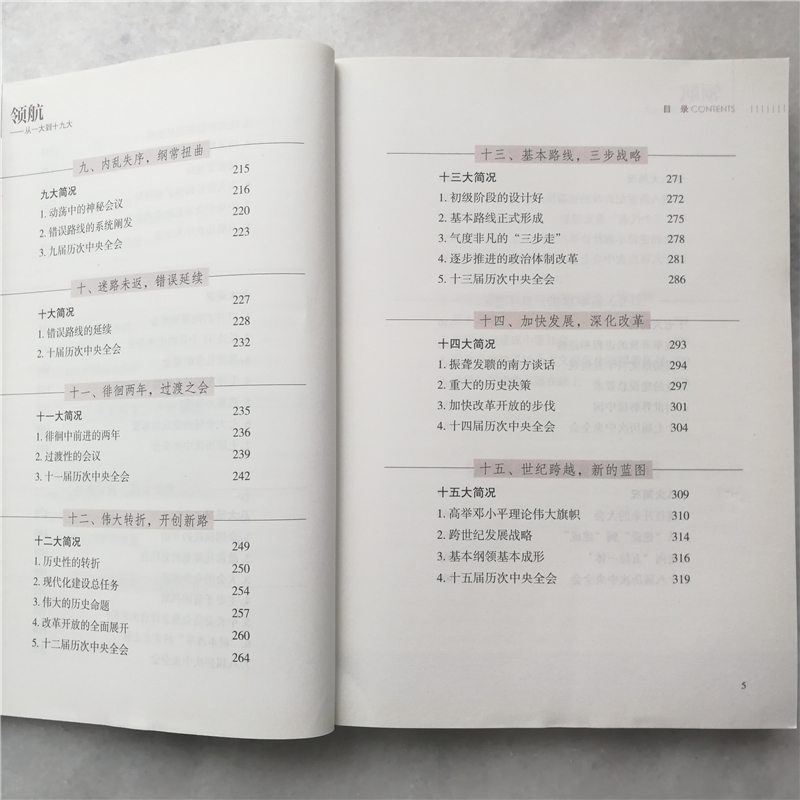 领航
——从一大到十九大
九、内乱失序，纲常扭曲 215
九大简况 216
1. 动荡中的神秘会议 220
2. 错误路线的系统阐发 223
3. 九届历次中央全会
十、迷路未返，错误延续 227
十大简况 228
1. 错误路线的延续 232
2. 十届历次中央全会
十一、徘徊两年，过渡之会 235
十一大简况 236
1. 徘徊中前进的两年 239
2. 过渡性的会议 242
3. 十一届历次中央全会
十二、伟大转折，开创新路 249
十二大简况 250
1. 历史性的转折 254
2. 现代化建设总任务 257
3. 伟大的历史命题 260
4. 改革开放的全面展开 264
5. 十二届历次中央全会
目 录 CONTENTS
十三、基本路线，三步战略
十三大简况 271
1. 初级阶段的设计好 272
2. 基本路线正式形成 275
3. 气度非凡的“三步走” 278
4. 逐步推进的政治体制改革 281
5. 十三届历次中央全会 286
十四、加快发展，深化改革
十四大简况 293
1. 振聋发聩的南方谈话 294
2. 重大的历史决策 297
3. 加快改革开放的步伐 301
4. 十四届历次中央全会 304
十五、世纪跨越，新的蓝图
十五大简况 309
1. 高举邓小平理论伟大旗帜 310
2. 跨世纪发展战略 314
3. 基本纲领基本成形 316
4. 十五届历次中央全会 319
5